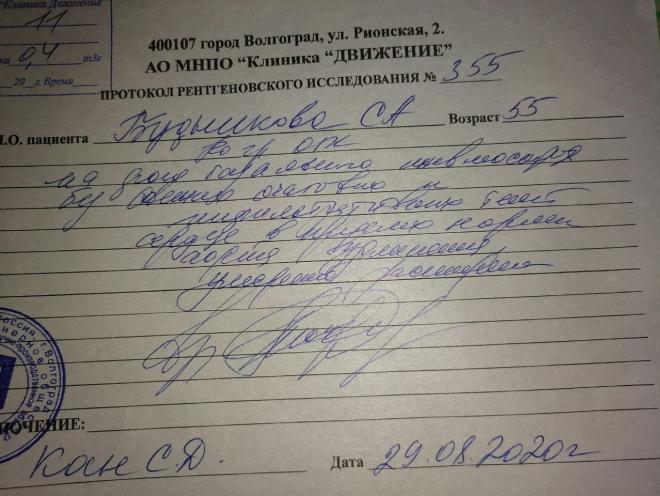 "Клиника Движение
11
0,4 м3в
20 г. Время
400107 город Волгоград, ул. Рионская, 2.
АО МНПО "Клиника "ДВИЖЕНИЕ"
ПРОТОКОЛ РЕНТГЕНОВСКОГО ИССЛЕДОВАНИЯ № 355
И.О. пациента Будникова СА Возраст 55
На гр ОГК
на фоне
без очагово и
инфильтративных теней
сердце в пределах нормы
аорта уплотнена,
умеренно расширена
ЮЧЕНИЕ:
Кан С.Д. Дата 29.08.2020г